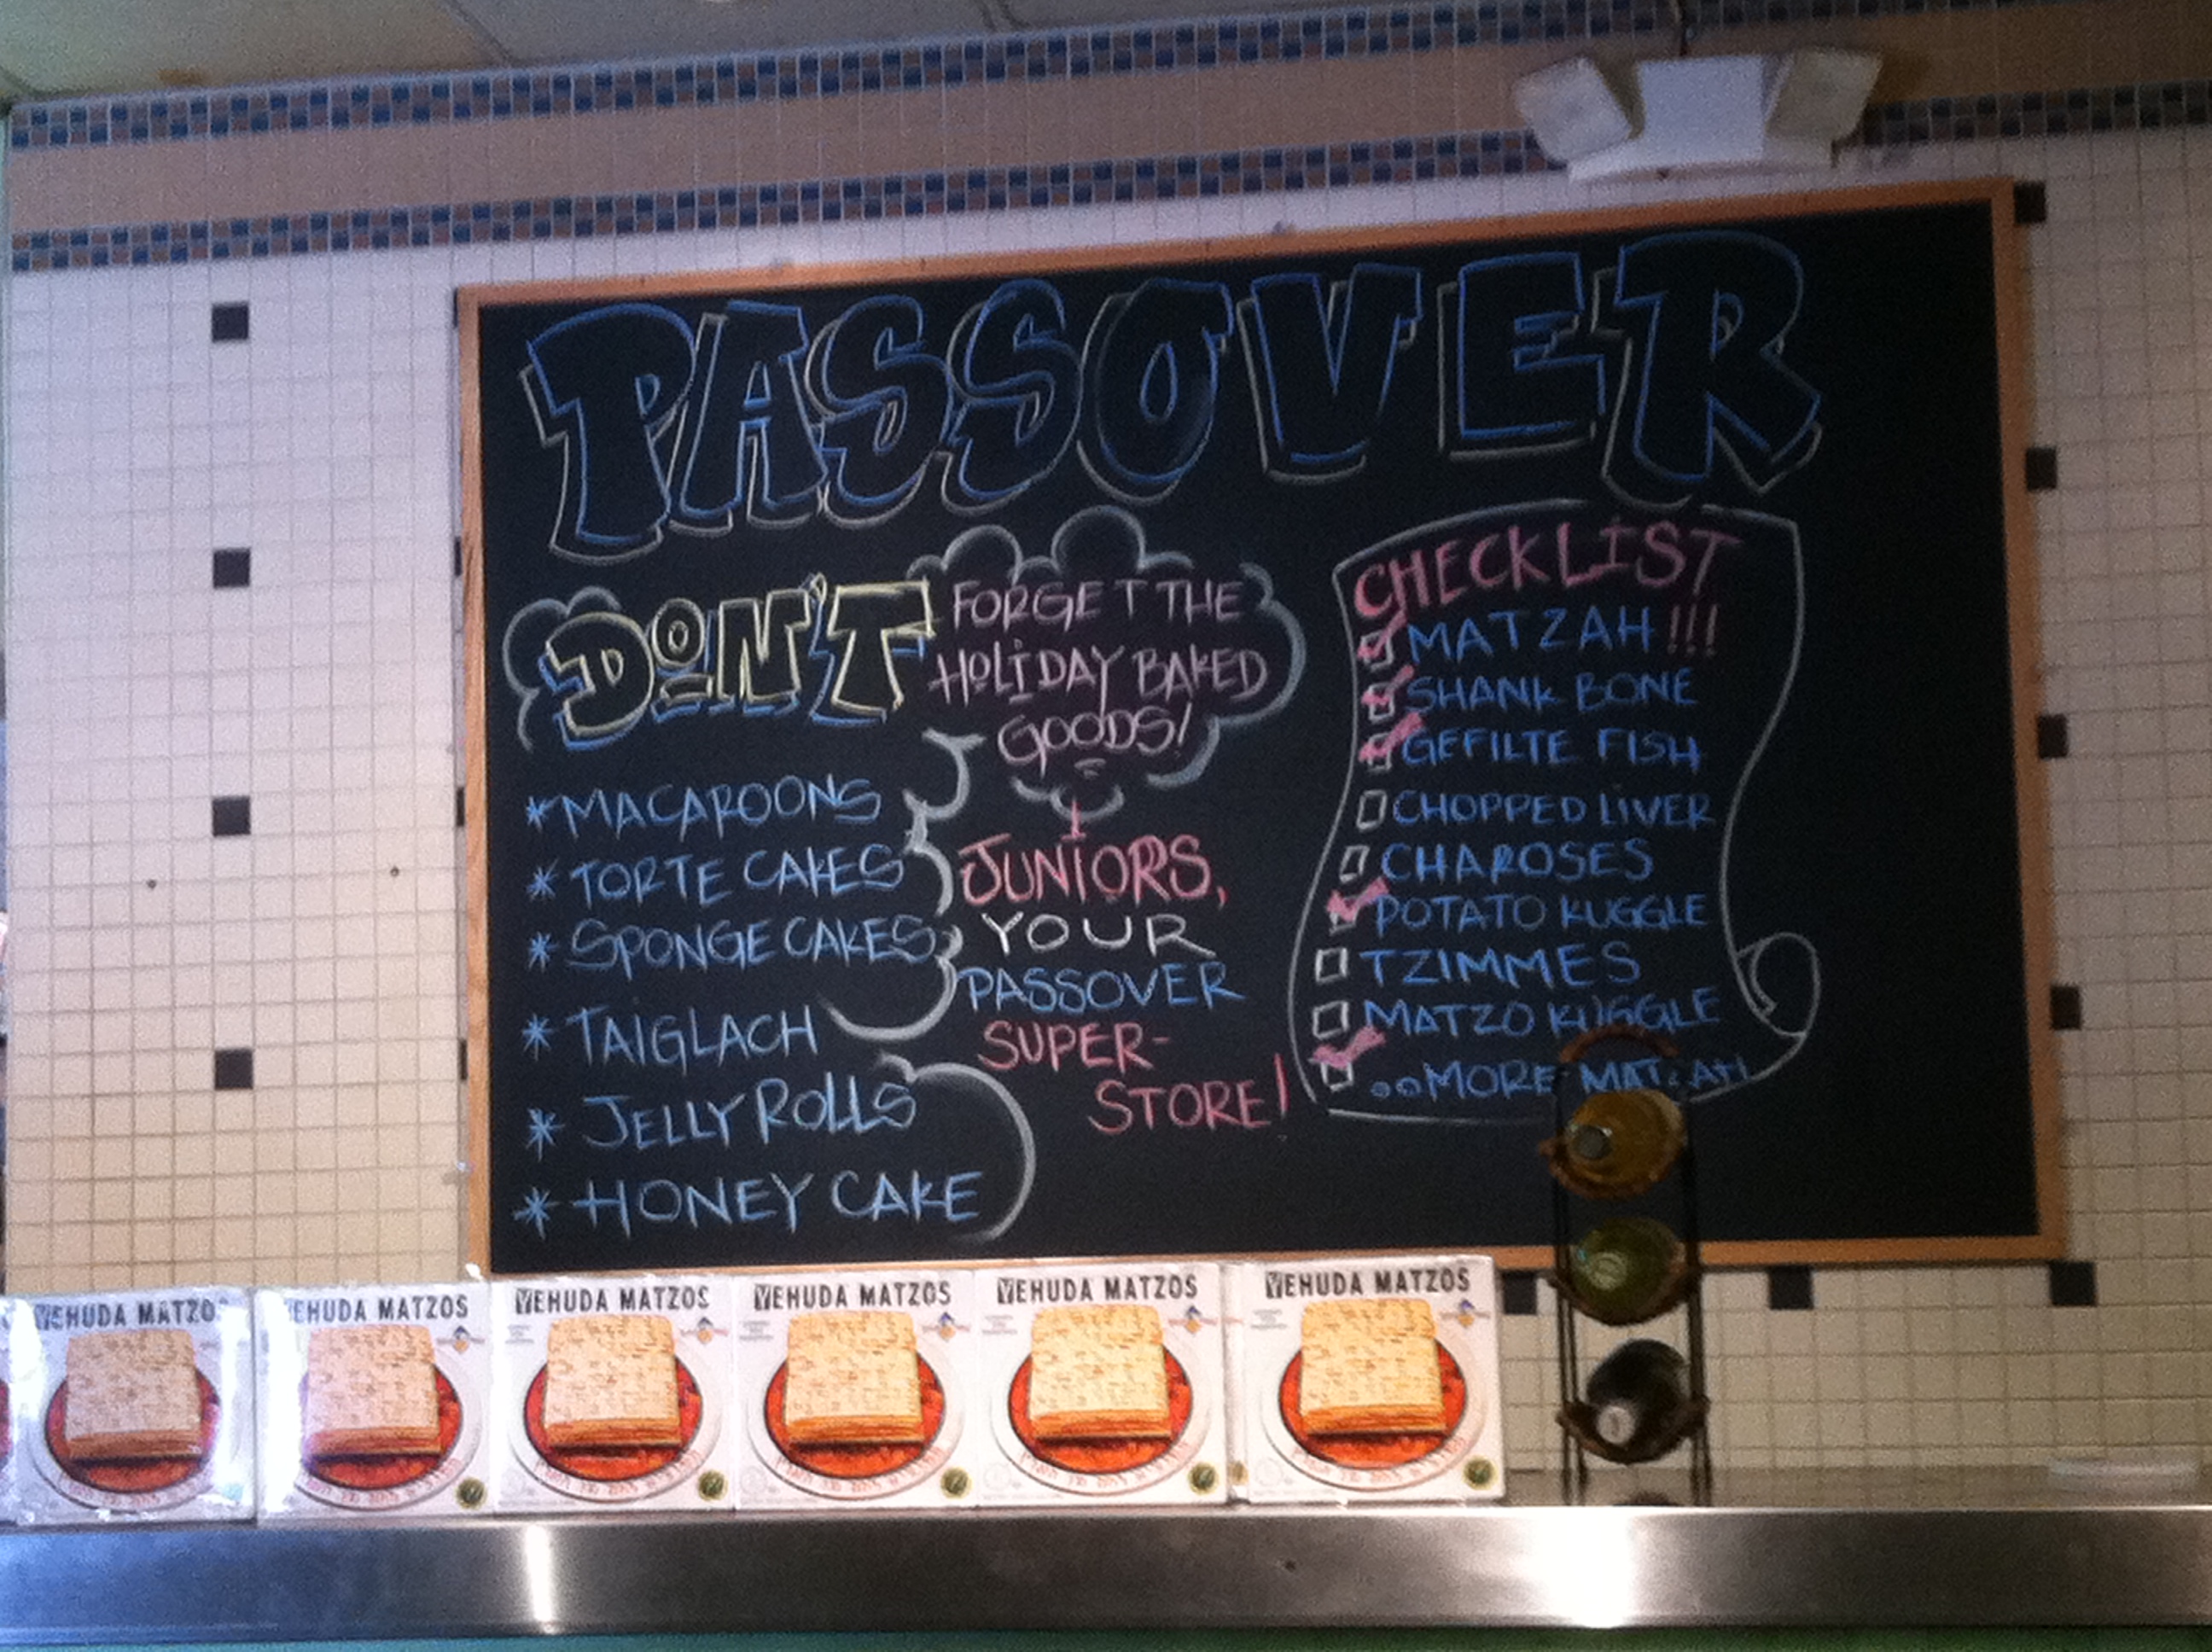 PASSOVER
DON'T
FORGET THE
HOLIDAY BAKED
GOODS!
* MACAROONS
* TORTE CAKES
* SPONGE CAKES
* TAIGLACH
* JELLY ROLLS
* HONEY CAKE
JUNIORS,
YOUR
PASSOVER
SUPER-
STORE!
CHECKLIST
MATZAH!!!
SHANK BONE
GEFILTE FISH
CHOPPED LIVER
CHAROSES
POTATO KUGGLE
TZIMMES
MATZO KUGGLE
..MORE MATZAH
YEHUDA MATZOS
YEHUDA MATZOS
YEHUDA MATZOS
YEHUDA MATZOS
YEHUDA MATZOS
YEHUDA MATZOS